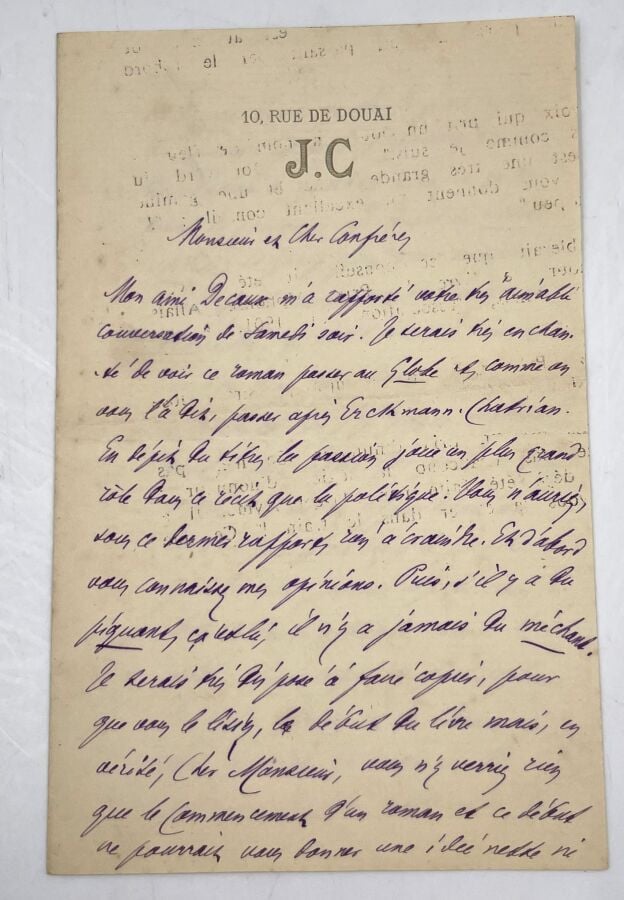 10, RUE DE DOUAI
J.C
Monsieur et Cher Confrère,
Mon ami Decaux m'a rapporté votre très aimable
conversation de Samedi soir. Je serais très enchan-
té de voir ce roman passer au Globe et, comme on
vous l'a dit, passer après Erckmann-Chatrian.
En dépit du titre, la passion joue un plus grand
rôle dans ce récit que la politique. Vous n'auriez,
sous ce dernier rapport, rien à craindre. Et d'abord
vous connaissez mes opinions. Puis, s'il y a du
piquant, çà et là, il n'y a jamais du méchant.
Je serais très disposé à faire copier, pour
que vous le lisiez, le début du livre mais, en
vérité, Cher Monsieur, vous n'y verriez rien
que le commencement d'un roman et ce début
ne pourrait vous donner une idée nette ni